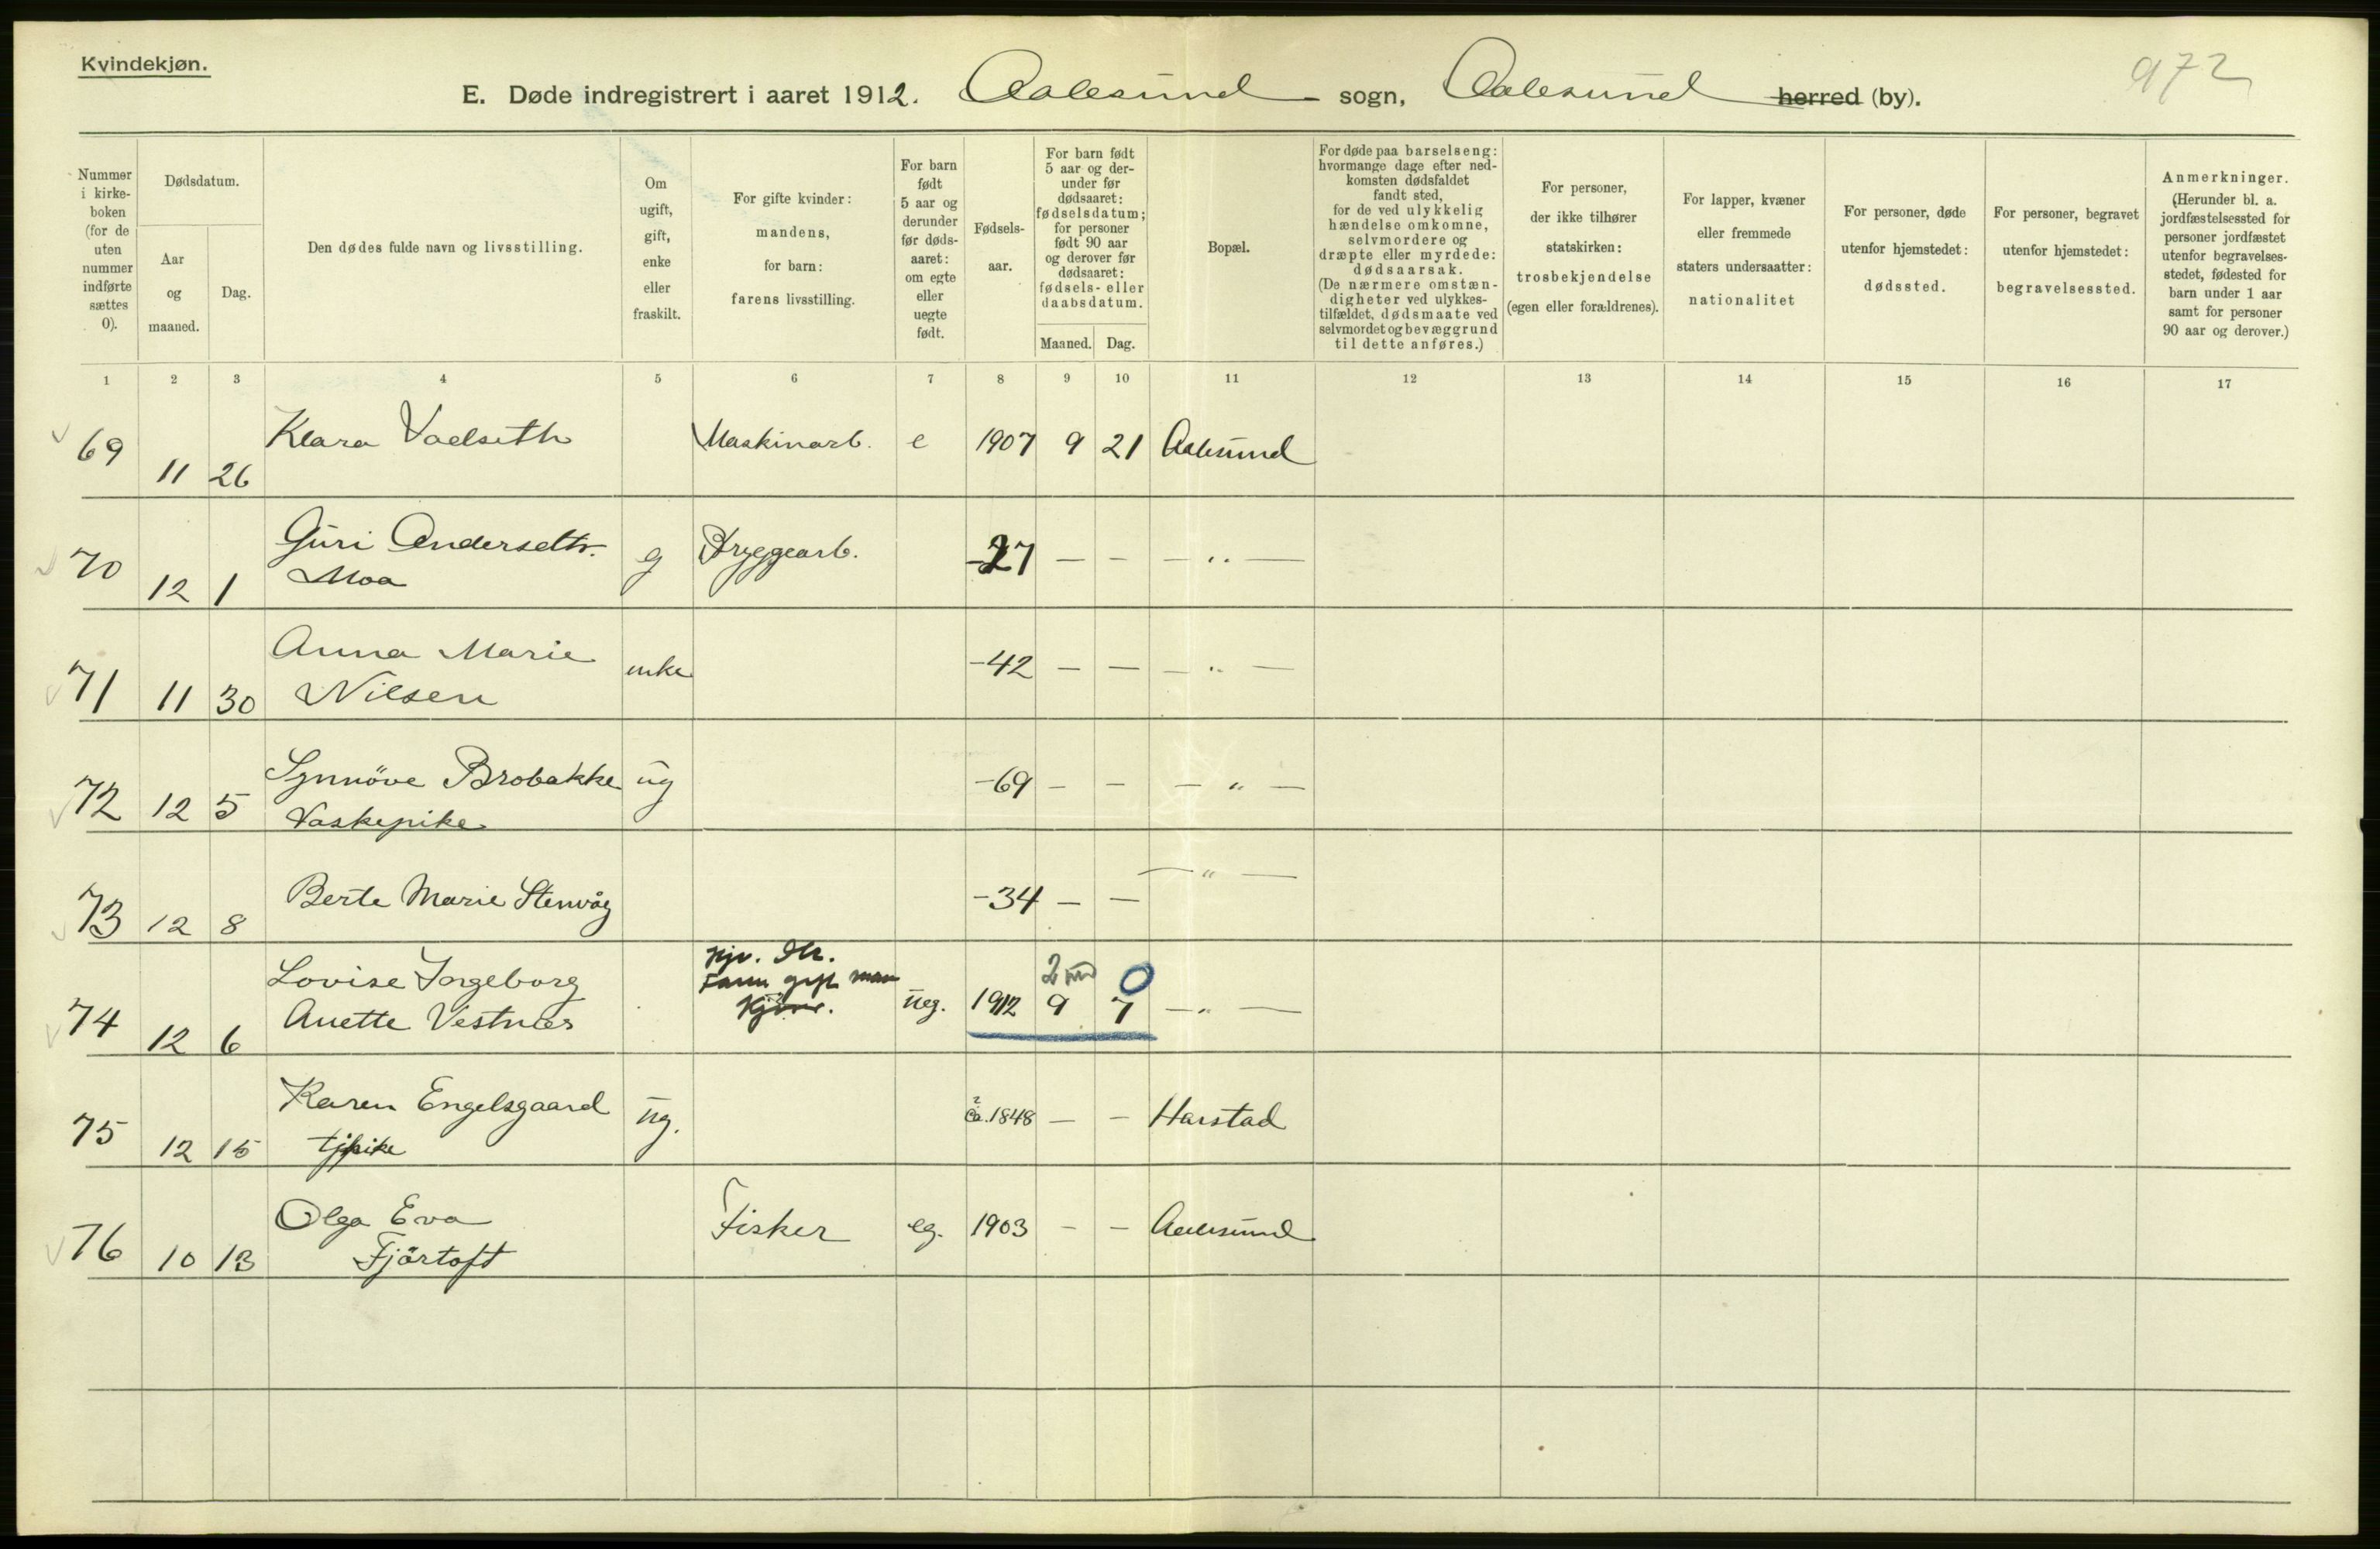 Kvindekjøn.
972
E. Døde indregistrert i aaret 1912. Aalesund sogn, Aalesund herred (by).
Nummer i kirke-boken (for de uten nummer indførte sættes 0).
Dødsdatum.
Aar og maaned.
Dag.
Den dødes fulde navn og livsstilling.
Om ugift, gift, enke eller fraskilt.
For gifte kvinder: mandens, for barn: farens livsstilling.
For barn født 5 aar og derunder før døds-aaret: om egte eller uegte født.
Fødsels-aar.
For barn født 5 aar og der-under før dødsaaret: fødselsdatum; for personer født 90 aar og derover før dødsaaret: fødsels- eller daabsdatum.
Maaned. Dag.
Bopæl.
For døde paa barselseng: hvormange dage efter ned-komsten dødsfaldet fandt sted, for de ved ulykkelig hændelse omkomne, selvmordere og dræpte eller myrdede: dødsaarsak. (De nærmere omstæn-digheter ved ulykkes-tilfældet, dødsmaate ved selvmordet og bevæggrund til dette anføres.)
For personer, der ikke tilhører statskirken: trosbekjendelse (egen eller forældrenes).
For lapper, kvæner eller fremmede staters undersaatter: nationalitet
For personer, døde utenfor hjemstedet: dødssted.
For personer, begravet utenfor hjemstedet: begravelsessted.
Anmerkninger. (Herunder bl. a. jordfæstelsessted for personer jordfæstet utenfor begravelses-stedet, fødested for barn under 1 aar samt for personer 90 aar og derover.)
1 2 3 4 5 6 7 8 9 10 11 12 13 14 15 16 17
69 11 26 Klara Vaelseth Maskinarb. e 1907 9 21 Aalesund
70 12 1 Guri Andersdtr. g Bryggearb. -27 — — — " —
Moa
71 11 30 Anna Marie enke -42 — — — " —
Nilsen
72 12 5 Synnöve Brobakke ug -69 — — — " —
Vaskepike
73 12 8 Berte Marie Stenvåg -34 — — — " —
74 12 6 Lovise Ingeborg ueg. 1912 9 7 — " —
Anette Vestnes
2 0
75 12 15 Karen Engelsgaard ug. ca. 1848 — — Harstad
tjpike
76 10 13 Olga Eva Fisker eg. 1903 — — Aalesund
Fjörtoft